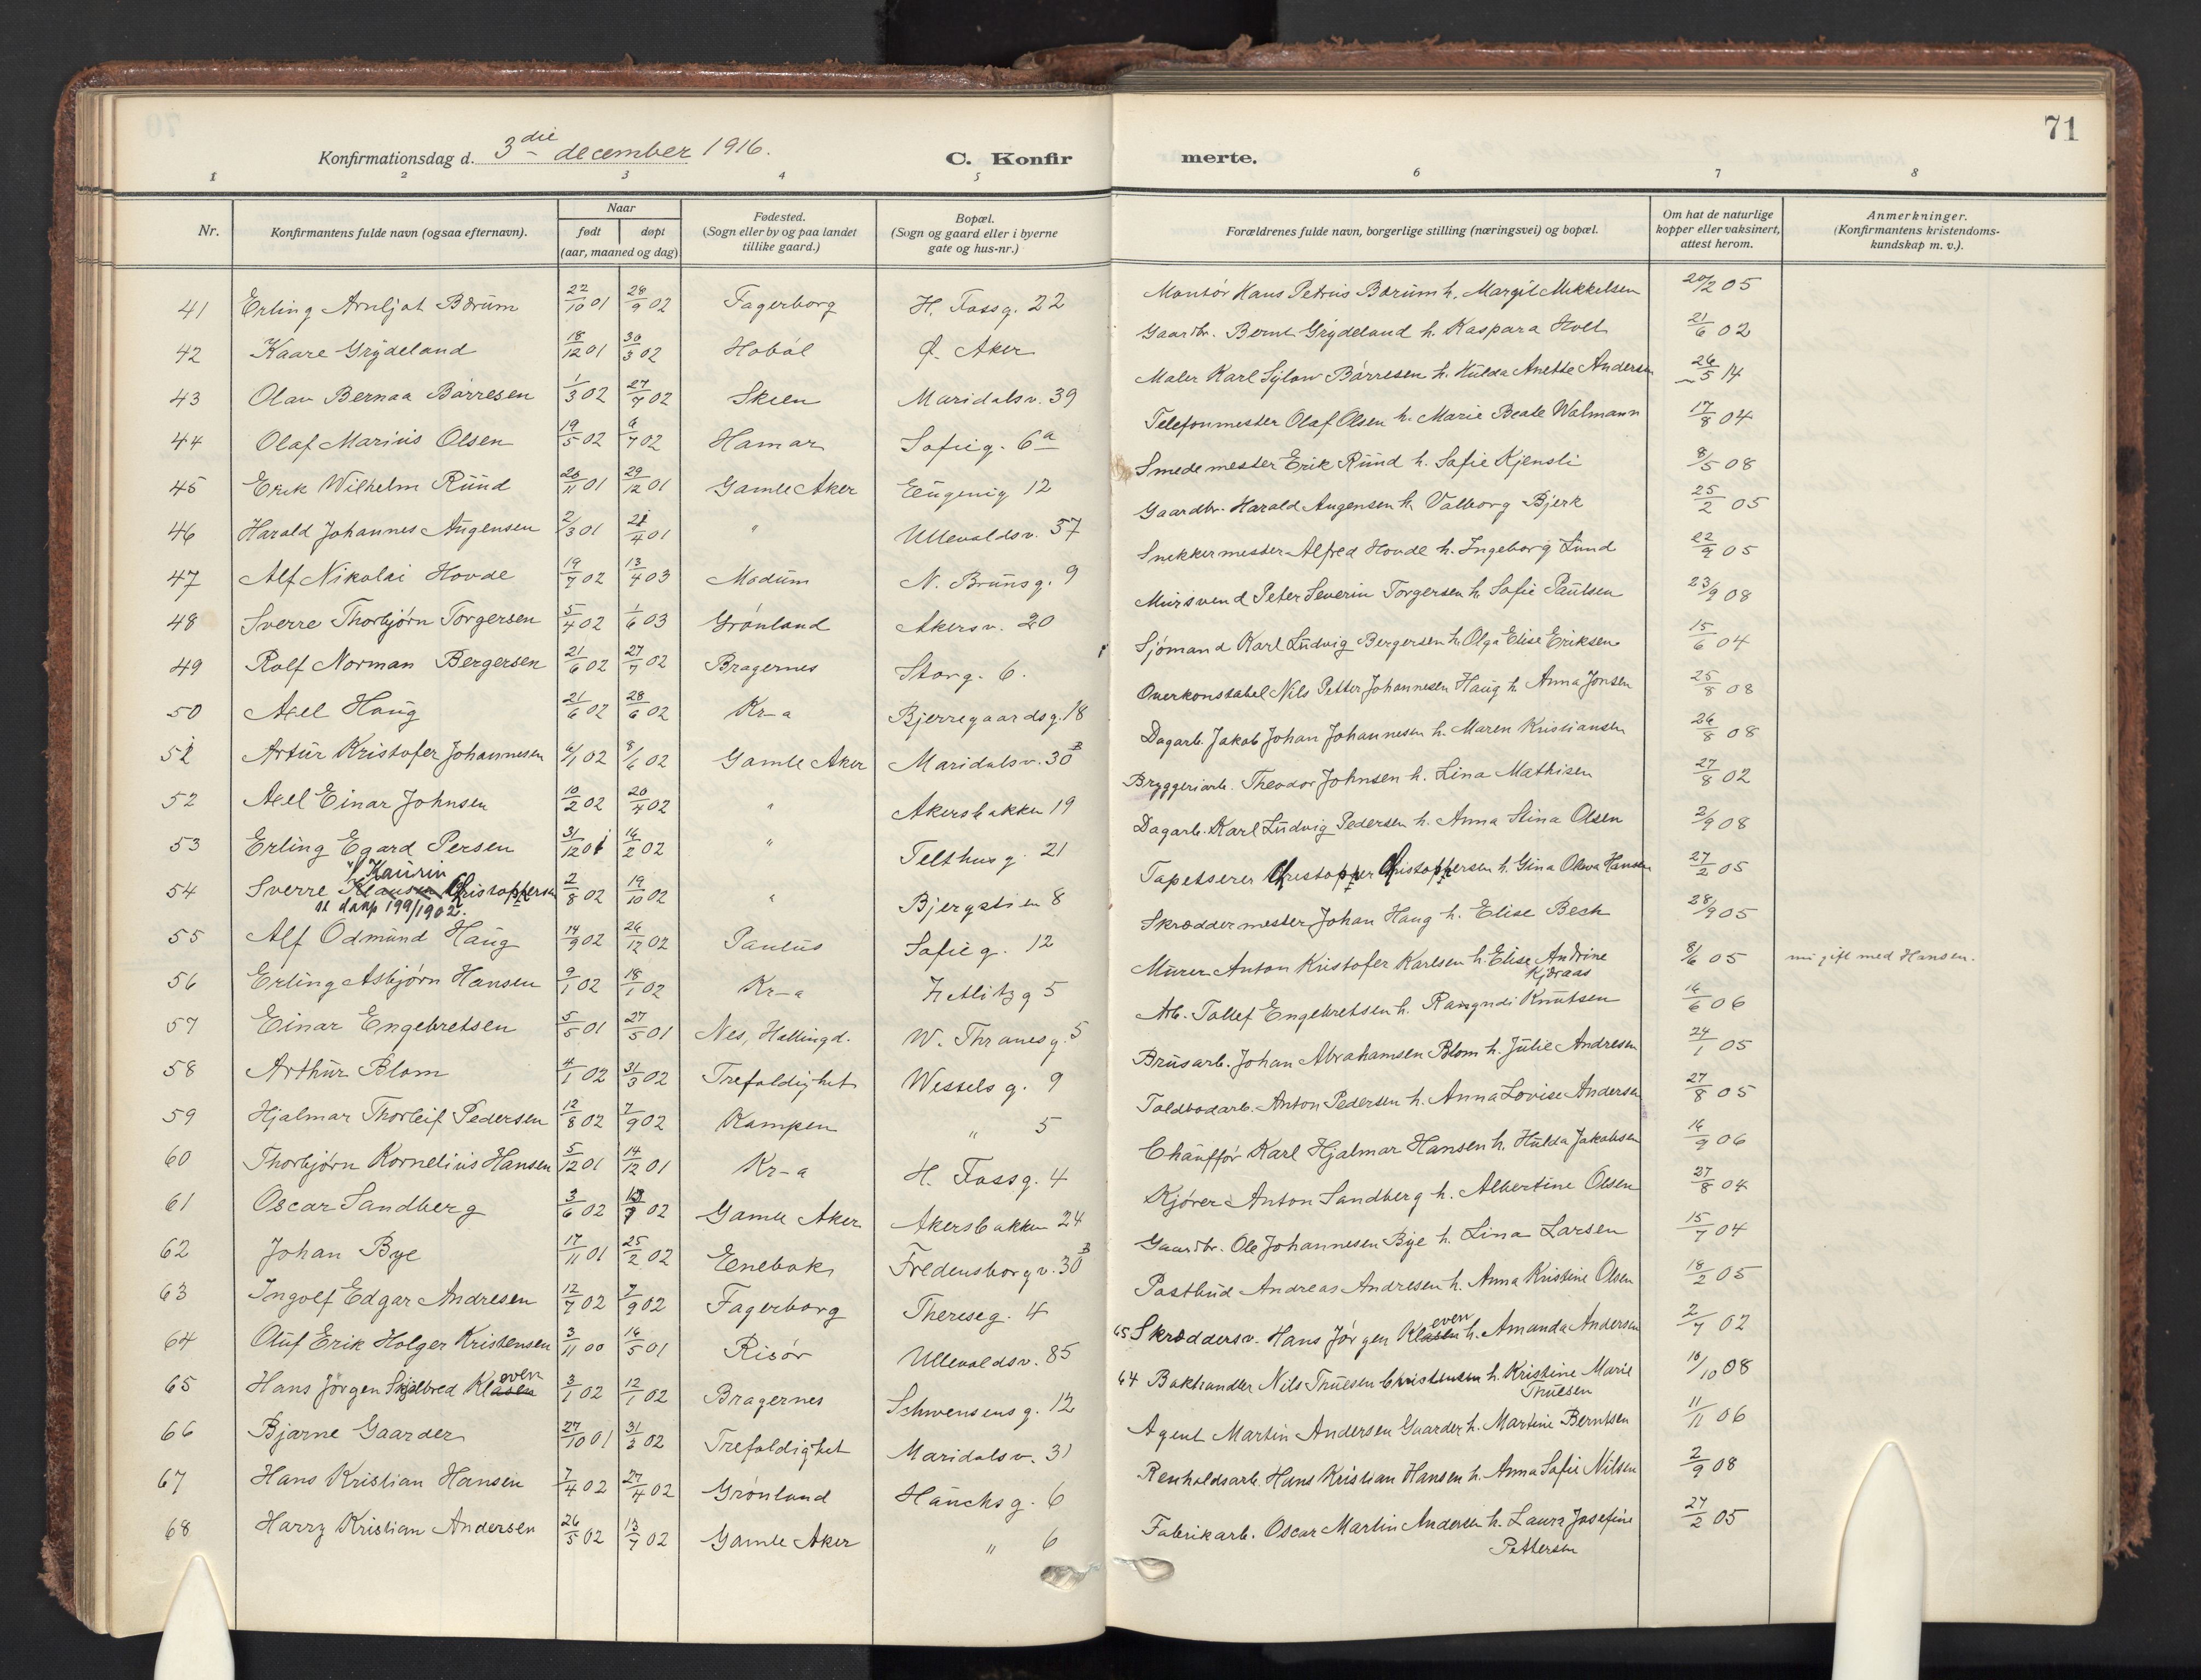 71
Konfirmationsdag d. 3die december 1916.
C. Konfirmerte.
1 2 3 4 5 6 7 8
Nr.
Konfirmantens fulde navn (ogsaa efternavn).
Naar
født døpt
(aar, maaned og dag)
Fødested.
(Sogn eller by og paa landet
tillike gaard.)
Bopæl.
(Sogn og gaard eller i byerne
gate og hus-nr.)
Forældrenes fulde navn, borgerlige stilling (næringsvei) og bopæl.
Om hat de naturlige
kopper eller vaksinert,
attest herom.
Anmerkninger.
(Konfirmantens kristendoms-
kundskap m. v.).
41 Erling Arnljot Bærum 22/10 01 28/9 02 Fagerborg H. Fossg. 22 Montør Hans Petrus Bærum h. Margit Mikkelsen 20/2 05
42 Kaare Grydeland 18/12 01 30/3 02 Hobøl Ø. Aker Gaardbr. Bernt Grydeland h. Kaspara Holt 21/6 02
43 Olav Bernaa Børresen 1/3 02 27/7 02 Skien Maridalsv. 39 Maler Karl Sylow Børresen h. Hulda Anette Andersen 26/5 14
44 Olaf Marius Olsen 19/5 02 6/7 02 Hamar Sofieg. 6a Telefonmester Olaf Olsen h. Marie Beate Walmann 17/8 04
45 Erik Wilhelm Ruud 20/11 01 29/12 01 Gamle Aker Eugenig 12 Smedemester Erik Ruud h. Sofie Kjensli 8/5 08
46 Harald Johannes Augensen 2/3 01 21/4 01 " Ullevoldsv. 57 Gaardbr. Harald Augensen h. Valborg Bjerk 25/2 05
47 Alf Nikolai Hovde 19/7 02 13/4 03 Modum N. Brunsg. 9 Snekkermester Alfred Hovde h. Ingeborg Lund 22/9 05
48 Sverre Thorbjørn Torgersen 5/4 02 1/6 03 Grønland Akersv. 20 Mursvend Peter Severin Torgersen h. Sofie Paulsen 23/9 08
49 Rolf Norman Bergersen 21/6 02 27/7 02 Bragernes Storg. 6. Sjømand Karl Ludvig Bergersen h. Olga Elise Eriksen 15/6 04
50 Axel Haug 21/6 02 28/6 02 Kr-a Bjerregaardsg. 18 Overkonstabel Nils Petter Johannesen Haug h. Anna Jonsen 25/8 08
51 Artur Kristofer Johannesen 6/1 02 8/6 02 Gamle Aker Maridalsv. 30B Dagarb. Jakob Johan Johannesen h. Maren Kristiansen 26/8 08
52 Axel Einar Johnsen 10/2 02 20/4 02 " Akersbakken 19 Bryggeriarb. Theodor Johnsen h. Lina Mathisen 27/8 02
53 Erling Egard Persen 31/12 01 16/2 02 " Telthusg. 21 Dagarb. Karl Ludvig Pedersen h. Anna Stina Olsen 2/9 08
Kaurin
54 Sverre Klausen Christophersen 2/8 02 19/10 02 " Bjergstien 8 Tapetserer Christopher Christophersen h. Gina Oleva Hansen 27/2 05
199/1902.
55 Alf Odmund Haug 14/9 02 26/12 02 Paulus Sofieg. 12 Skræddermester Johan Haug h. Elise Beck 28/9 05
56 Erling Asbjørn Hansen 9/1 02 18/1 02 Kr-a Zetlitzg 5 Murer Anton Kristofer Karlsen h. Elise Andrine 8/6 05 nu gift med Hansen.
Kjøraas
57 Einar Engebretsen 5/5 01 27/5 01 Nes, Hallingd. W. Thranesg. 5 Arb. Tollef Engebretsen h. Rangndi Knutsen 16/6 06
58 Arthur Blom 4/1 02 31/3 02 Trefoldighet Wesselsg. 9 Brusarb. Johan Abrahamsen Blom h. Julie Andresen 24/1 05
59 Hjalmar Thorleif Pedersen 12/8 02 7/9 02 Kampen " 5 Toldbodarb. Anton Pedersen h. Anna Lovise Andersen 27/8 05
60 Thorbjørn Kornelius Hansen 5/12 01 14/12 01 Kr-a H. Fossg. 4 Chauffør Karl Hjalmar Hansen h. Hulda Jakobsen 16/9 06
61 Oscar Sandberg 3/6 02 02 Gamle Aker Akersbakken 24 Kjører Anton Sandberg h. Albertine Olsen 27/8 04
62 Johan Bye 17/11 01 25/2 02 Enebak Fredensborgv. 30B Gaardbr. Ole Johannesen Bye h. Lina Larsen 15/7 04
63 Ingolf Edgar Andresen 12/7 02 7/9 02 Fagerborg Thereseg. 4 Postbud Andreas Andresen h. Anna Kristine Olsen 18/2 05
64 Oluf Erik Holger Kristensen 3/11 00 16/5 01 Risør Ullevoldsv. 85 65 Skræddersv. Hans Jørgen Klasen even h. Amanda Andersen 2/7 02
65 Hans Jørgen Skjelbred Klasen oven 3/1 02 12/1 02 Bragernes Schwensensg. 12 64 Bokhandler Nils Thuesen Christensen h. Kristine Marie 10/10 08
Thuesen
66 Bjarne Gaarder 27/10 01 31/3 02 Trefoldighet Maridalsv. 31 Agent Martin Andersen Gaarder h. Martine Berntsen 11/11 06
67 Hans Kristian Hansen 7/4 02 27/4 02 Grønland Hauchsg. 6 Renholdsarb. Hans Kristian Hansen h. Anna Sofie Nilsen 2/9 08
68 Harry Kristian Andersen 26/5 02 13/7 02 Gamle Aker " 6 Fabrikarb. Oscar Martin Andersen h. Laura Josefine 27/2 05
Pettersen